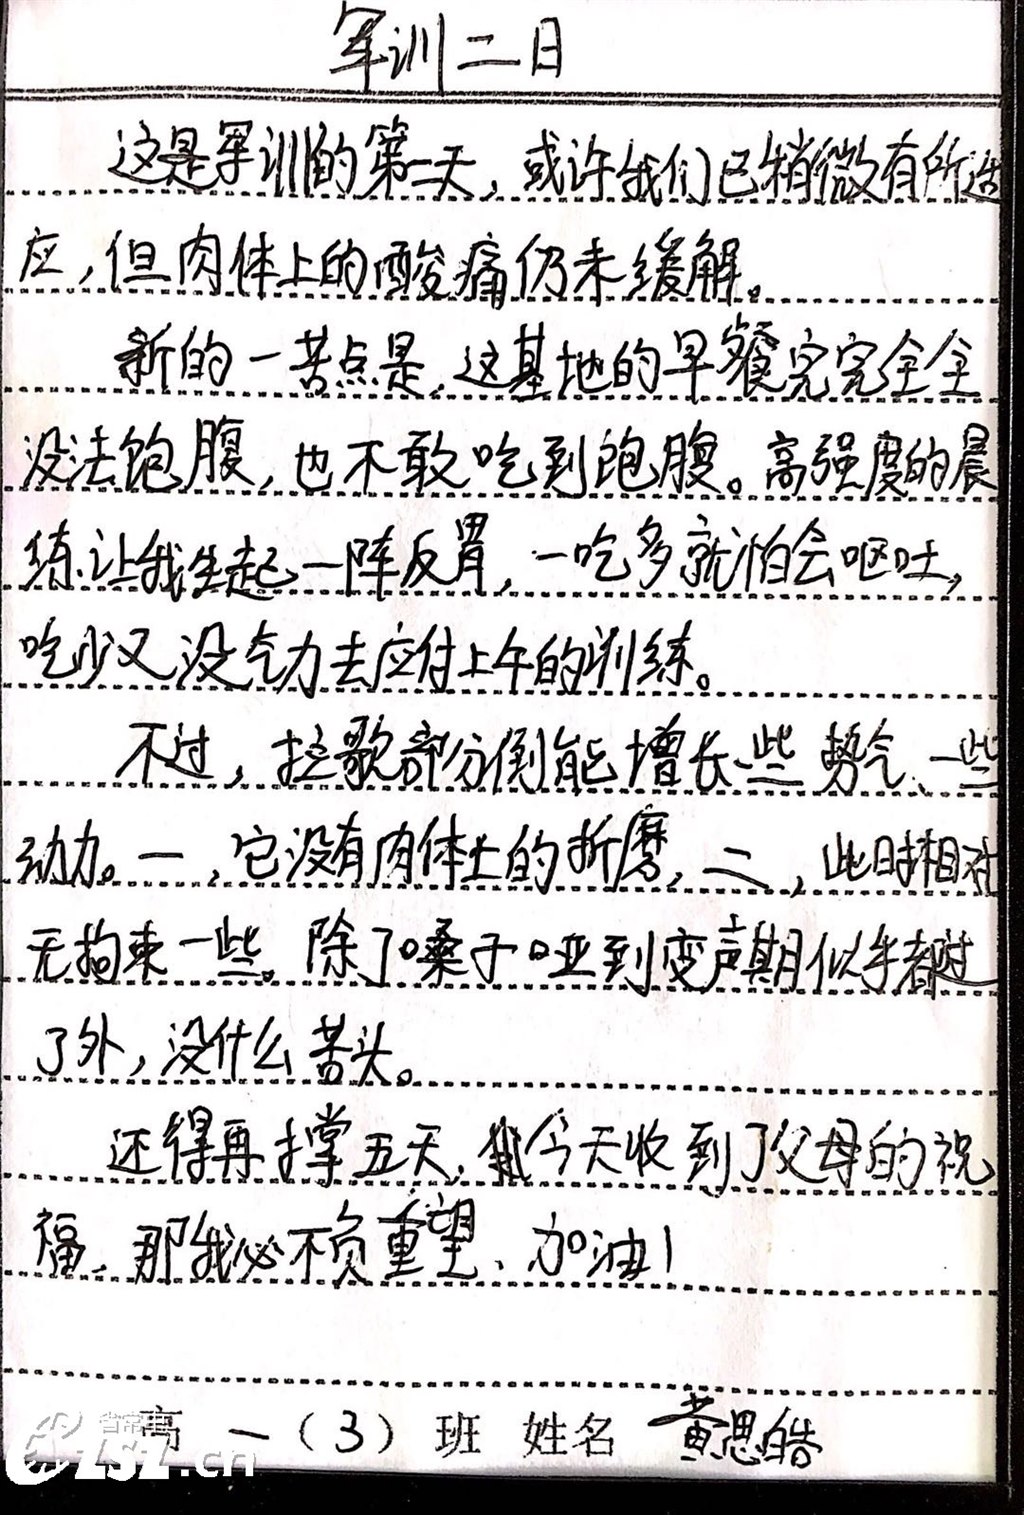 军训二日
这是军训的第二天，或许我们已稍微有所适
应，但肉体上的酸痛仍未缓解。
新的一苦点是，这基地的早餐完完全全
没法饱腹，也不敢吃到饱腹。高强度的晨
练让我生起一阵反胃，一吃多就怕会呕吐，
吃少又没气力去应付上午的训练。
不过，拉歌部分倒能增长一些势气、一些
动力。一，它没有肉体上的折磨，二，此时相对
无拘束一些。除了嗓子哑到变声期似乎都过
了外，没什么苦头。
还得再撑五天，今天收到了父母的祝
福，那我必不负重望、加油！
高一（3）班 姓名 黄思皓
省常中
CZSZ.cn